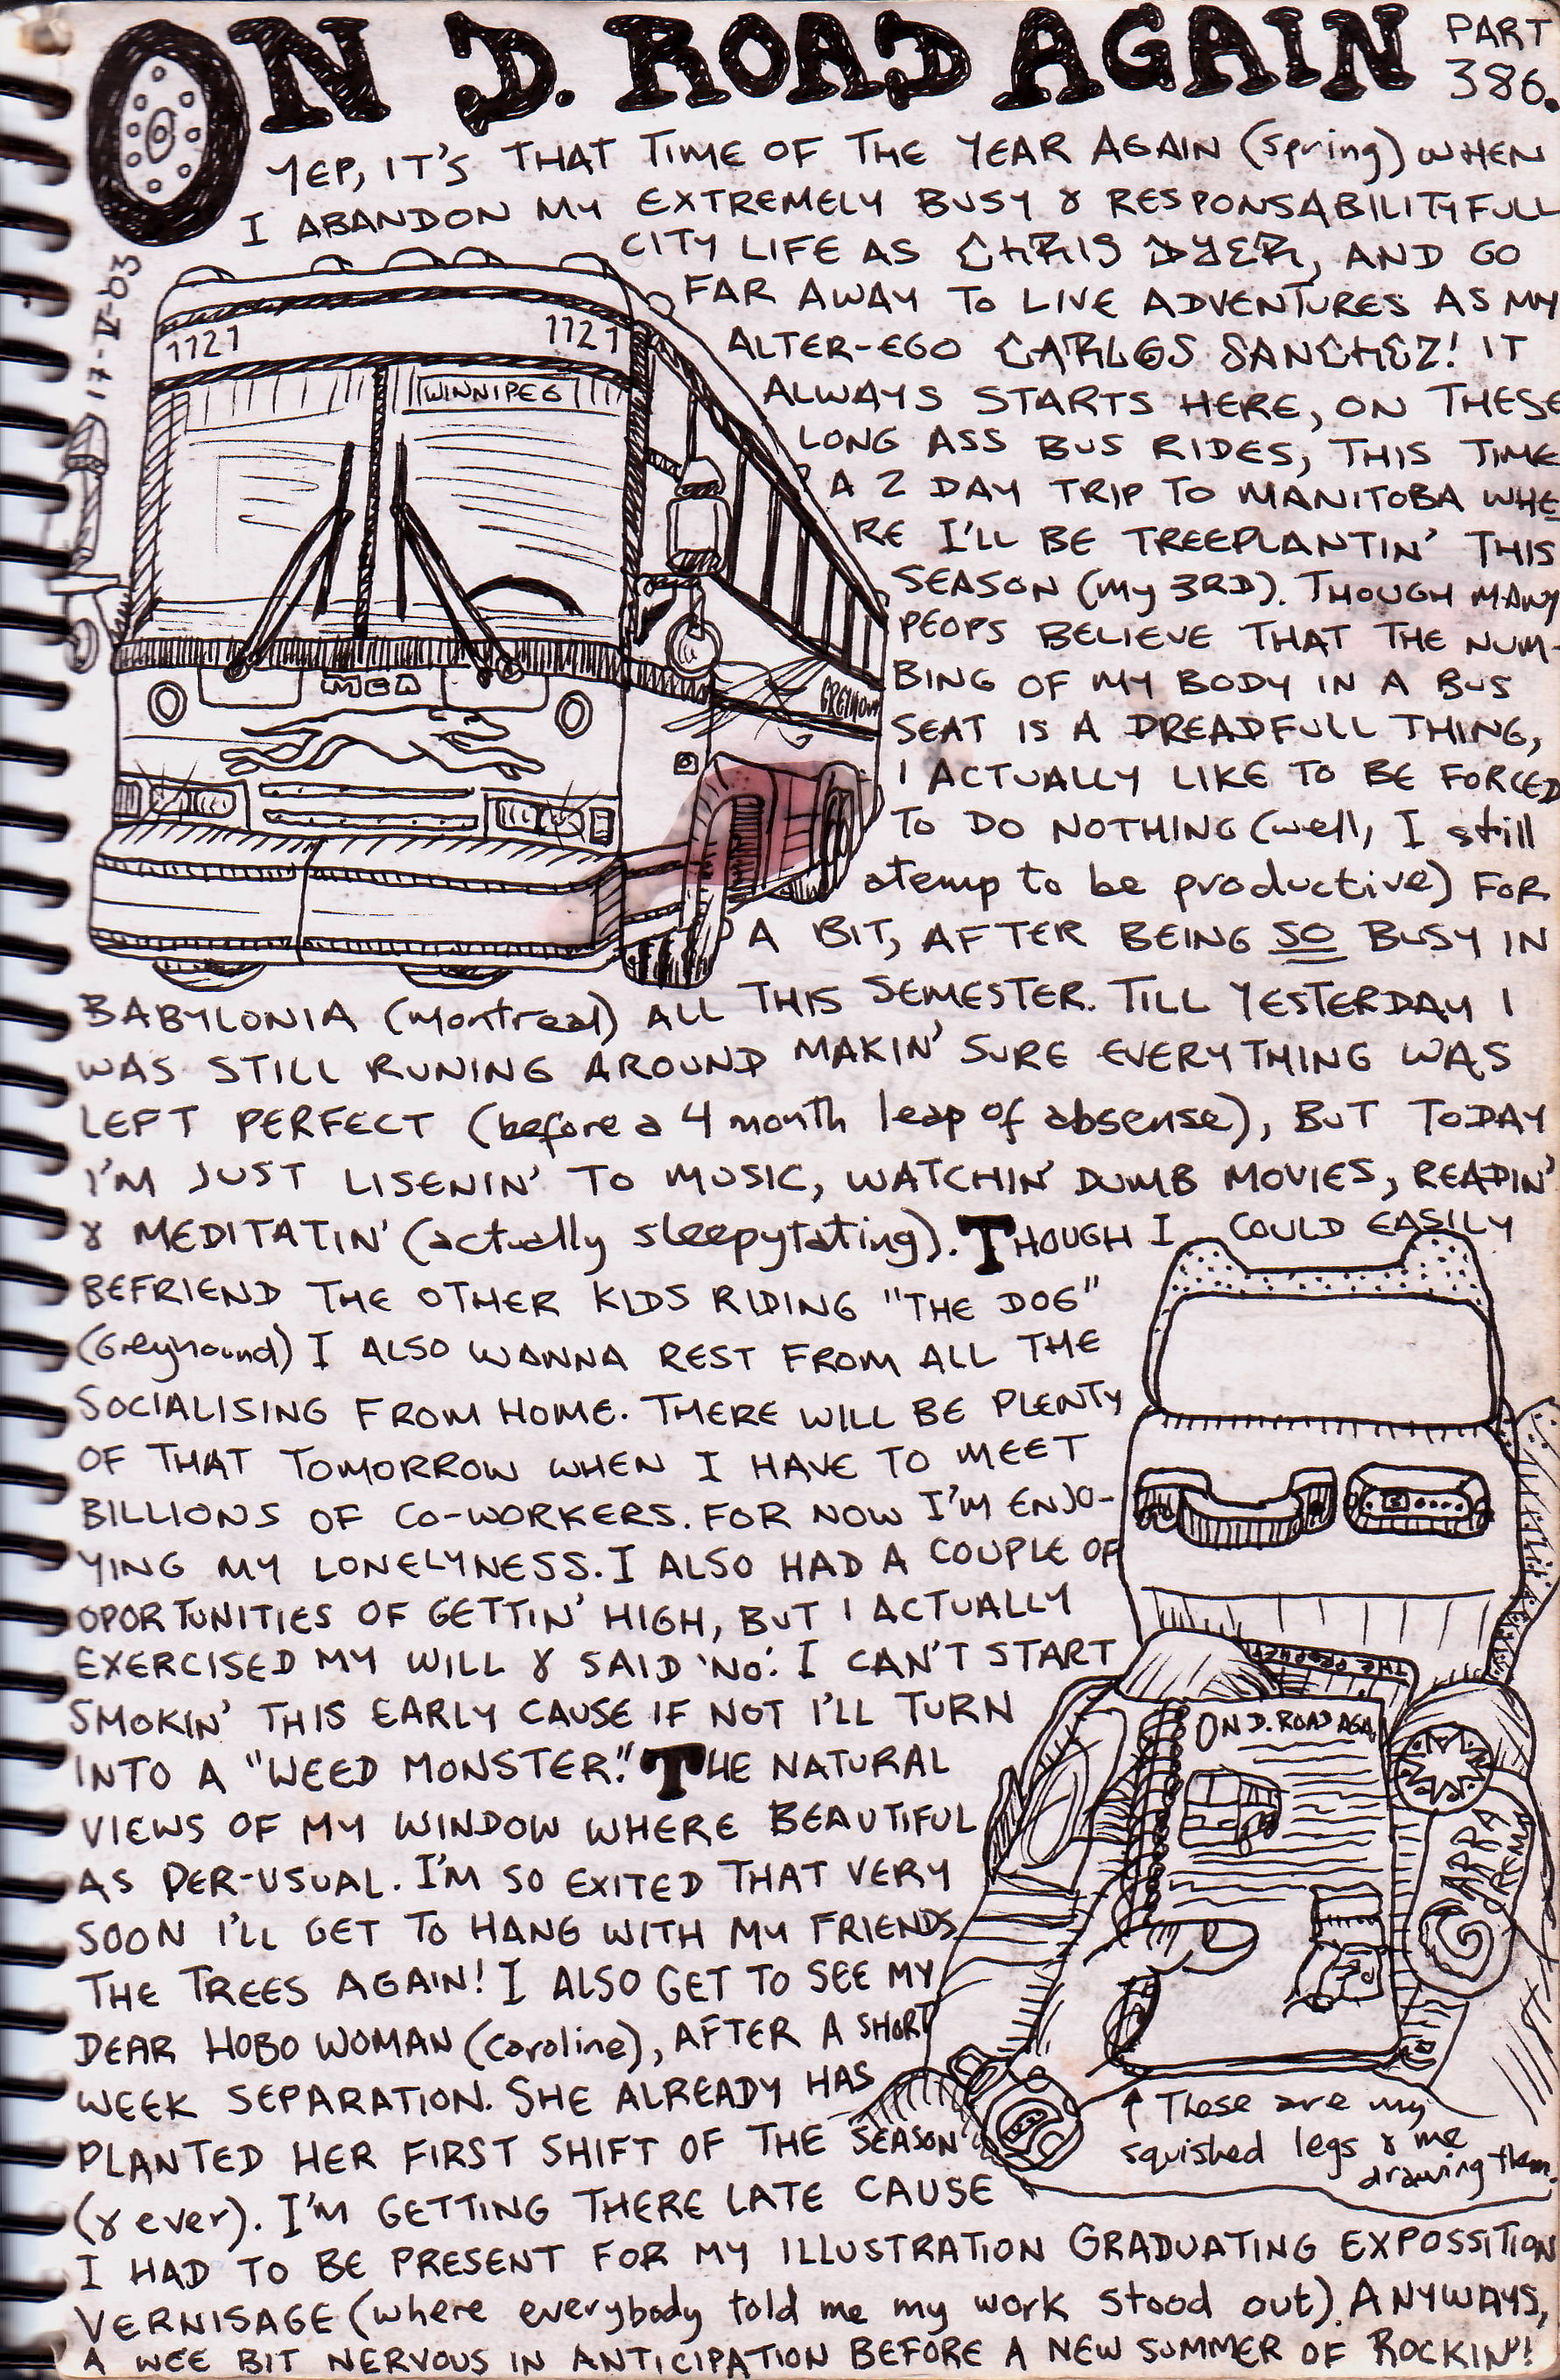 ON D. ROAD AGAIN PART 386.
YEP, IT'S THAT TIME OF THE YEAR AGAIN (Spring) WHEN
I ABANDON MY EXTREMELY BUSY & RESPONSABILITYFULL
CITY LIFE AS CHRIS DYER, AND GO
FAR AWAY TO LIVE ADVENTURES AS MY
ALTER-EGO CARLOS SANCHEZ! IT
ALWAYS STARTS HERE, ON THESE
LONG ASS BUS RIDES, THIS TIME
A 2 DAY TRIP TO MANITOBA WHE
RE I'LL BE TREEPLANTIN' THIS
SEASON (My 3RD). THOUGH MANY
PEOPS BELIEVE THAT THE NUM-
BING OF MY BODY IN A BUS
SEAT IS A DREADFULL THING,
I ACTUALLY LIKE TO BE FORCED
TO DO NOTHING (well, I still
atemp to be productive) FOR
A BIT, AFTER BEING SO BUSY IN
BABYLONIA (Montreal) ALL THIS SEMESTER. TILL YESTERDAY I
WAS STILL RUNING AROUND MAKIN' SURE EVERYTHING WAS
LEFT PERFECT (before a 4 month leap of absense), BUT TODAY
I'M JUST LISENIN' TO MUSIC, WATCHIN' DUMB MOVIES, READIN'
& MEDITATIN' (actually sleepytating). THOUGH I COULD EASILY
BEFRIEND THE OTHER KIDS RIDING "THE DOG"
(Greyhound) I ALSO WANNA REST FROM ALL THE
SOCIALISING FROM HOME. THERE WILL BE PLENTY
OF THAT TOMORROW WHEN I HAVE TO MEET
BILLIONS OF CO-WORKERS. FOR NOW I'M ENJO-
YING MY LONELYNESS. I ALSO HAD A COUPLE OF
OPORTUNITIES OF GETTIN' HIGH, BUT I ACTUALLY
EXERCISED MY WILL & SAID 'NO'. I CAN'T START
SMOKIN' THIS EARLY CAUSE IF NOT I'LL TURN
INTO A "WEED MONSTER". THE NATURAL
VIEWS OF MY WINDOW WHERE BEAUTIFUL
AS PER-USUAL. I'M SO EXITED THAT VERY
SOON I'LL GET TO HANG WITH MY FRIENDS
THE TREES AGAIN! I ALSO GET TO SEE MY
DEAR HOBO WOMAN (Caroline), AFTER A SHORT
WEEK SEPARATION. SHE ALREADY HAS
PLANTED HER FIRST SHIFT OF THE SEASON
(& ever). I'M GETTING THERE LATE CAUSE
I HAD TO BE PRESENT FOR MY ILLUSTRATION GRADUATING EXPOSSITION
VERNISAGE (where everybody told me my work stood out). ANYWAYS,
A WEE BIT NERVOUS IN ANTICIPATION BEFORE A NEW SUMMER OF ROCKIN'!
17-IV-03
1121 1121
WINNIPEG
MCA
ON D. ROAD AGA
↑ These are my
squished legs & me
drawing them.